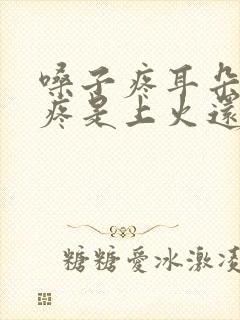 嗓子疼耳朵
疼是上火還
糖糖愛冰激凌